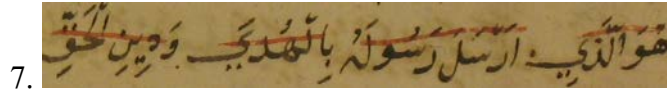 7. هُوَ الَّذِي ارْسَلَ رَسُولَهُ بِالْهُدَي وَدِينِ الْحَقِّ